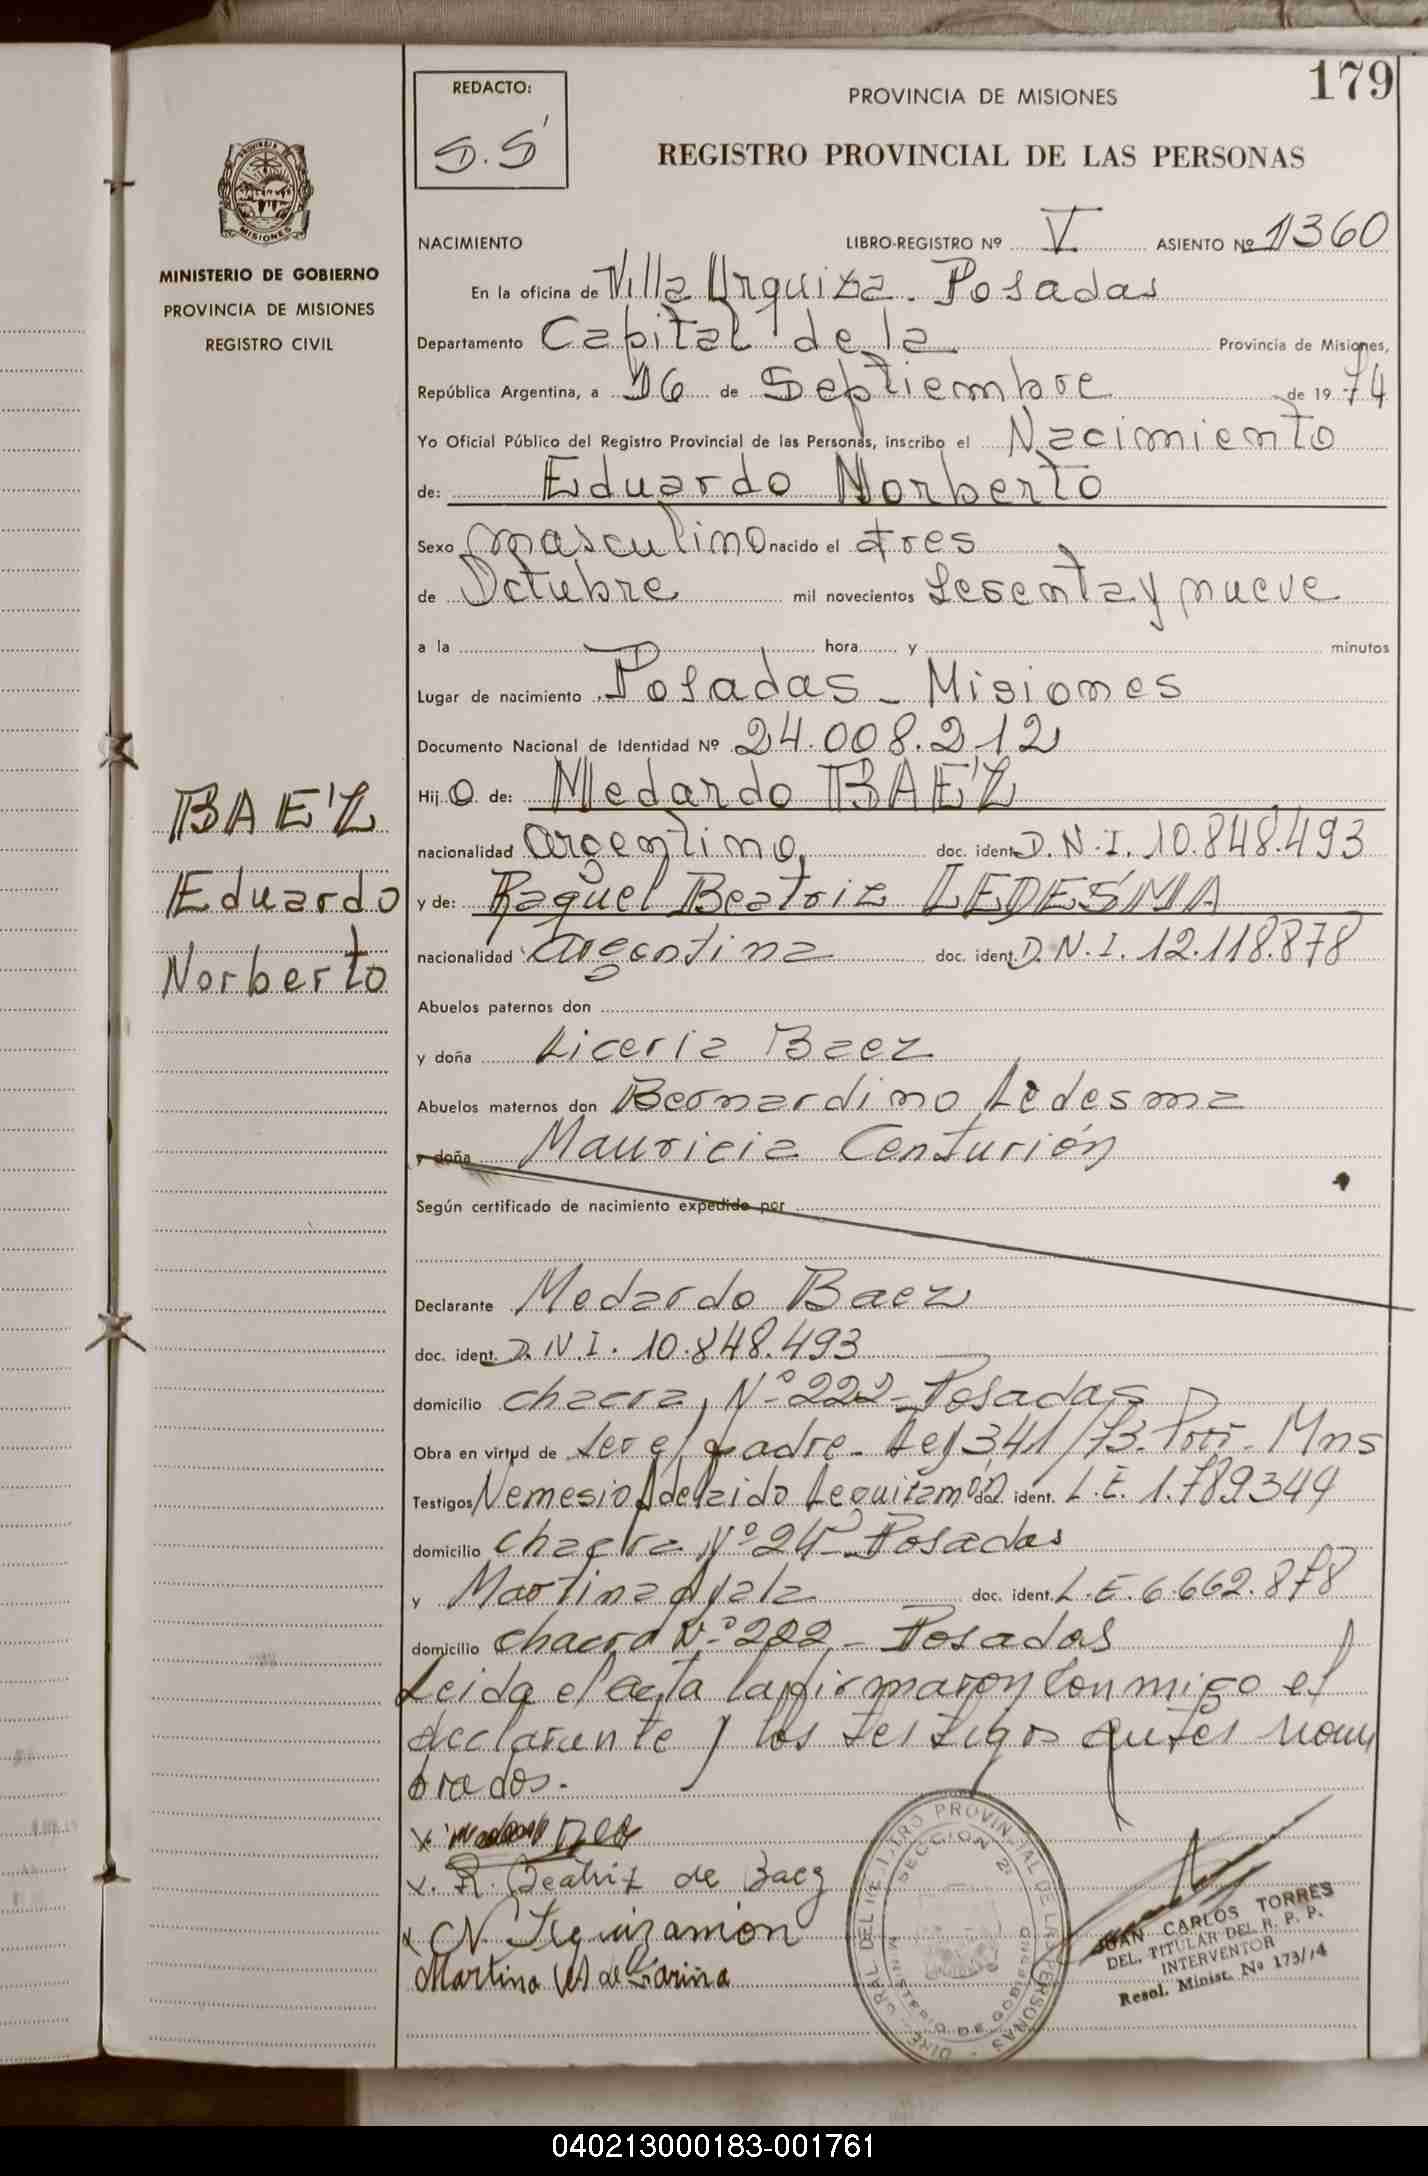 179
REDACTO:
S.S
PROVINCIA DE MISIONES
REGISTRO PROVINCIAL DE LAS PERSONAS
PROVINCIA DE
MISIONES
MINISTERIO DE GOBIERNO
PROVINCIA DE MISIONES
REGISTRO CIVIL
NACIMIENTO LIBRO-REGISTRO Nº V ASIENTO Nº 1360
En la oficina de Villa Urquiza. Posadas
Departamento Capital de la Provincia de Misiones,
República Argentina, a 16 de Septiembre de 19 74
Yo Oficial Público del Registro Provincial de las Personas, inscribo el Nacimiento
de: Eduardo Norberto
Sexo masculino nacido el tres
de Octubre mil novecientos sesenta y nueve
a la hora y minutos
Lugar de nacimiento Posadas - Misiones
Documento Nacional de Identidad Nº 24.008.212
Hij o de: Medardo BAEZ
nacionalidad argentino, doc. ident. D.N.I. 10.848.493
y de: Raquel Beatriz LEDESMA
nacionalidad argentina doc. ident. D.N.I. 12.118.878
Abuelos paternos don
y doña Liceria Baez
Abuelos maternos don Bernardino Ledesma
y doña Mauricia Centurión
Según certificado de nacimiento expedido por
Declarante Medardo Baez
doc. ident. D.N.I. 10.848.493
domicilio chacra Nº 222 - Posadas
Obra en virtud de ser el padre - Ley 341/73. Mns
Testigos Nemesio Leguizamón doc. ident. L.E. 1.789349
domicilio chacra Nº 24 - Posadas
y Martina Ayala doc. ident. L.E. 6.662.878
domicilio chacra Nº 222 - Posadas
Leida el acta la firmaron conmigo el
declarante y los testigos antes nom
brados.
BAEZ
Eduardo
Norberto
x.
x. R. Beatriz de Baez
x N. Leguizamon
Martina de Fariña
DIRE GRAL DEL REGISTRO PROVINCIAL DE LAS PERSONAS
SECCION 2
MINISTERIO DE GOBIERNO
JUAN CARLOS TORRES
DEL. TITULAR DEL R. P. P.
INTERVENTOR
Resol. Minist. Nº 173/74
040213000183-001761